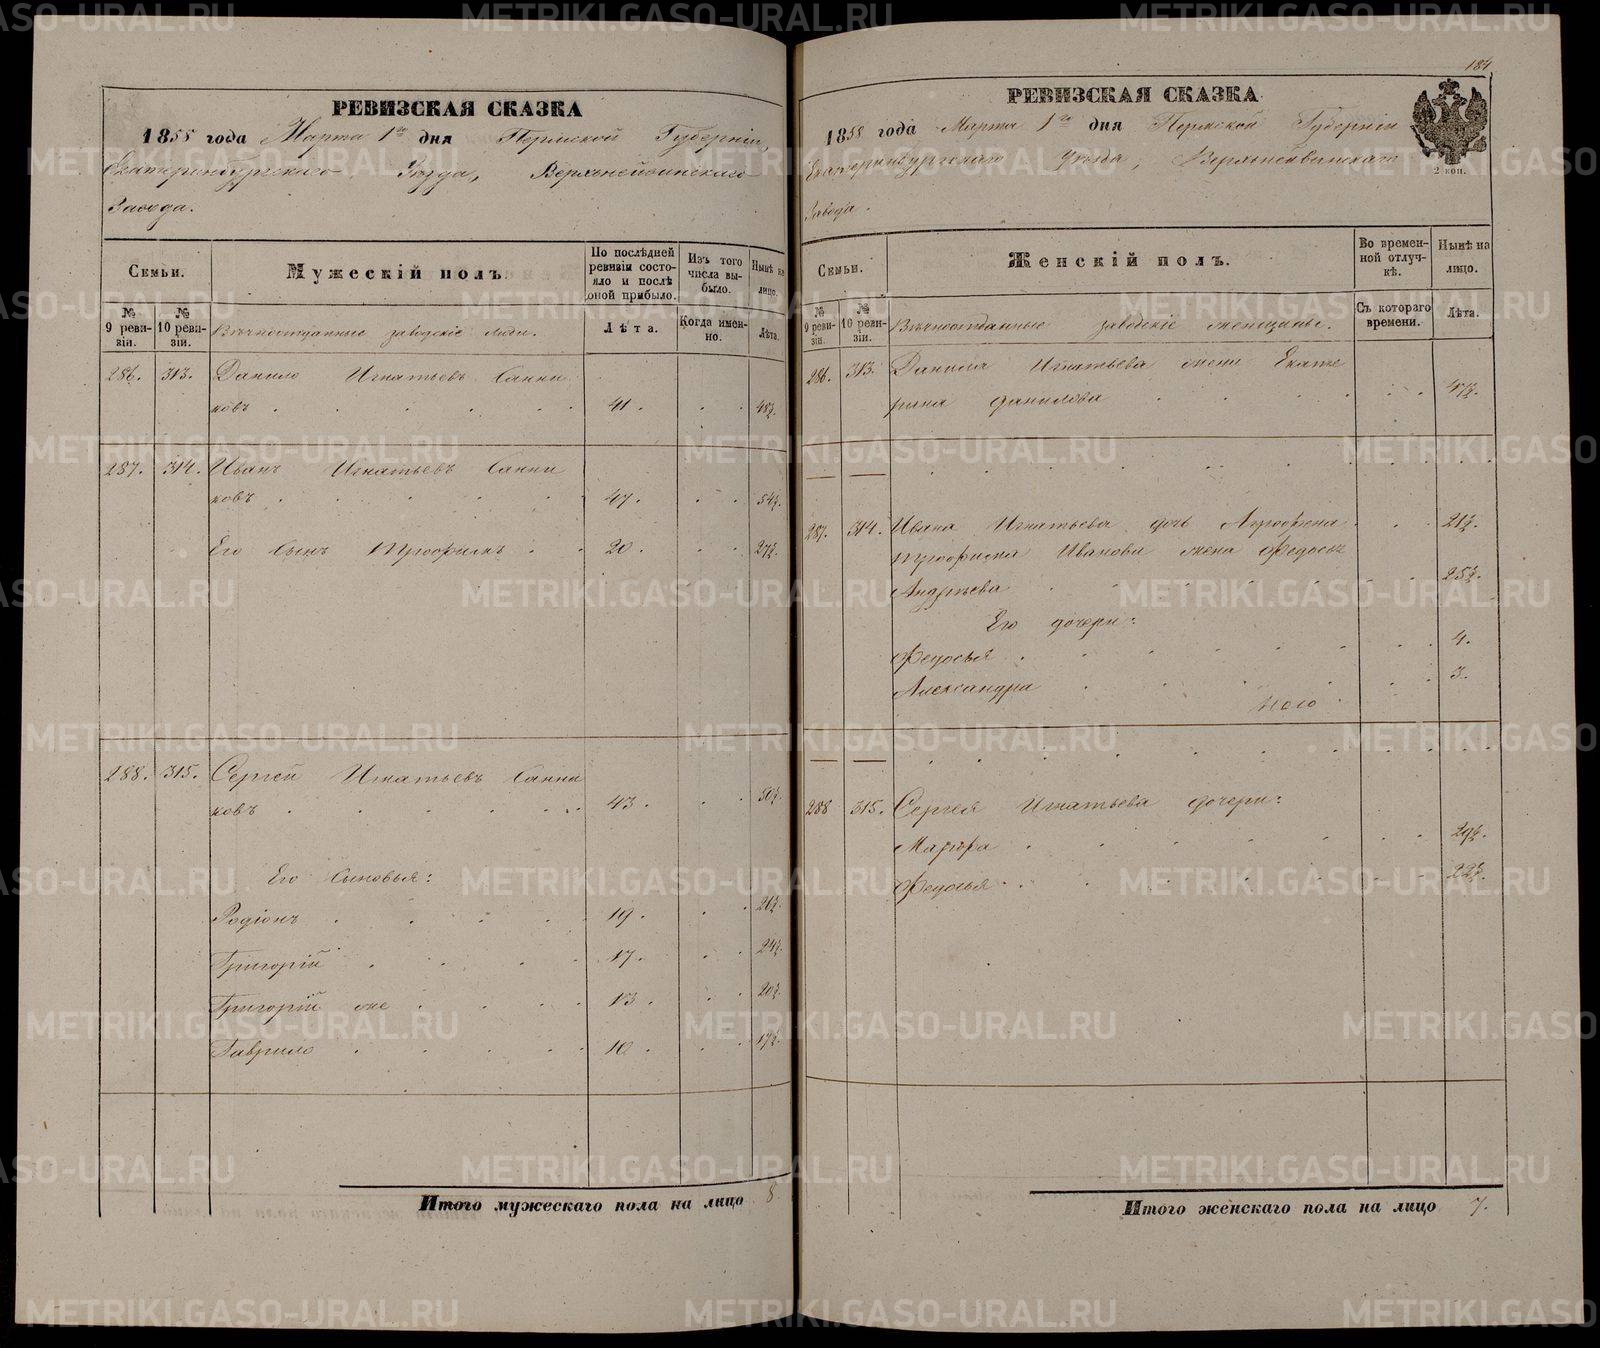 РЕВИЗСКАЯ СКАЗКА
1858 года Марта 1го дня Пермской Губерніи,
Екатеринбургскаго Уѣзда, Верхнейвинскаго
Завода.
Семьи.
Мужескій полъ.
По послѣдней ревизіи состояло и послѣ оной прибыло.
Изъ того числа выбыло.
Нынѣ на лицо.
№ 9 ревизіи.
№ 10 ревизіи.
Вѣчноотданные заводскіе люди.
Лѣта.
Когда именно.
Лѣта.
286. 313. Данило Игнатьевъ Санни
ковъ . 41. 48½.
287. 314. Иванъ Игнатьевъ Санни
ковъ . 47. 54½.
Его Сынъ Трофимъ 20. 27½.
288. 315. Сергей Игнатьевъ Санни
ковъ . 43. 50½.
Его Сыновья:
Родіонъ 19. 26½.
Григорій 17. 24½.
Григорій же 13. 20½.
Гаврило 10. 17½.
Итого мужескаго пола на лицо 8
184
РЕВИЗСКАЯ СКАЗКА
1858 года Марта 1го дня Пермской Губерніи
Екатеринбургскаго Уѣзда, Верхнейвинскаго
Завода.
2 коп.
Семьи.
Женскій полъ.
Во временной отлучкѣ.
Нынѣ на лицо.
№ 9 ревизіи.
№ 10 ревизіи.
Вѣчноотданные заводскіе женщины.
Съ котораго времени.
Лѣта.
286. 313. Данила Игнатьева жена Екате
рина Данилова 47½.
287. 314. Ивана Игнатьева дочь Агрофена 21½.
Трофима Иванова жена Федосья
Андрѣева 25½.
Его дочери:
Федосья 4.
Александра 3.
288 315. Сергея Игнатьева дочери:
Марфа 29½.
Федосья 22½.
Итого женскаго пола на лицо 7.
METRIKI.GASO-URAL.RU